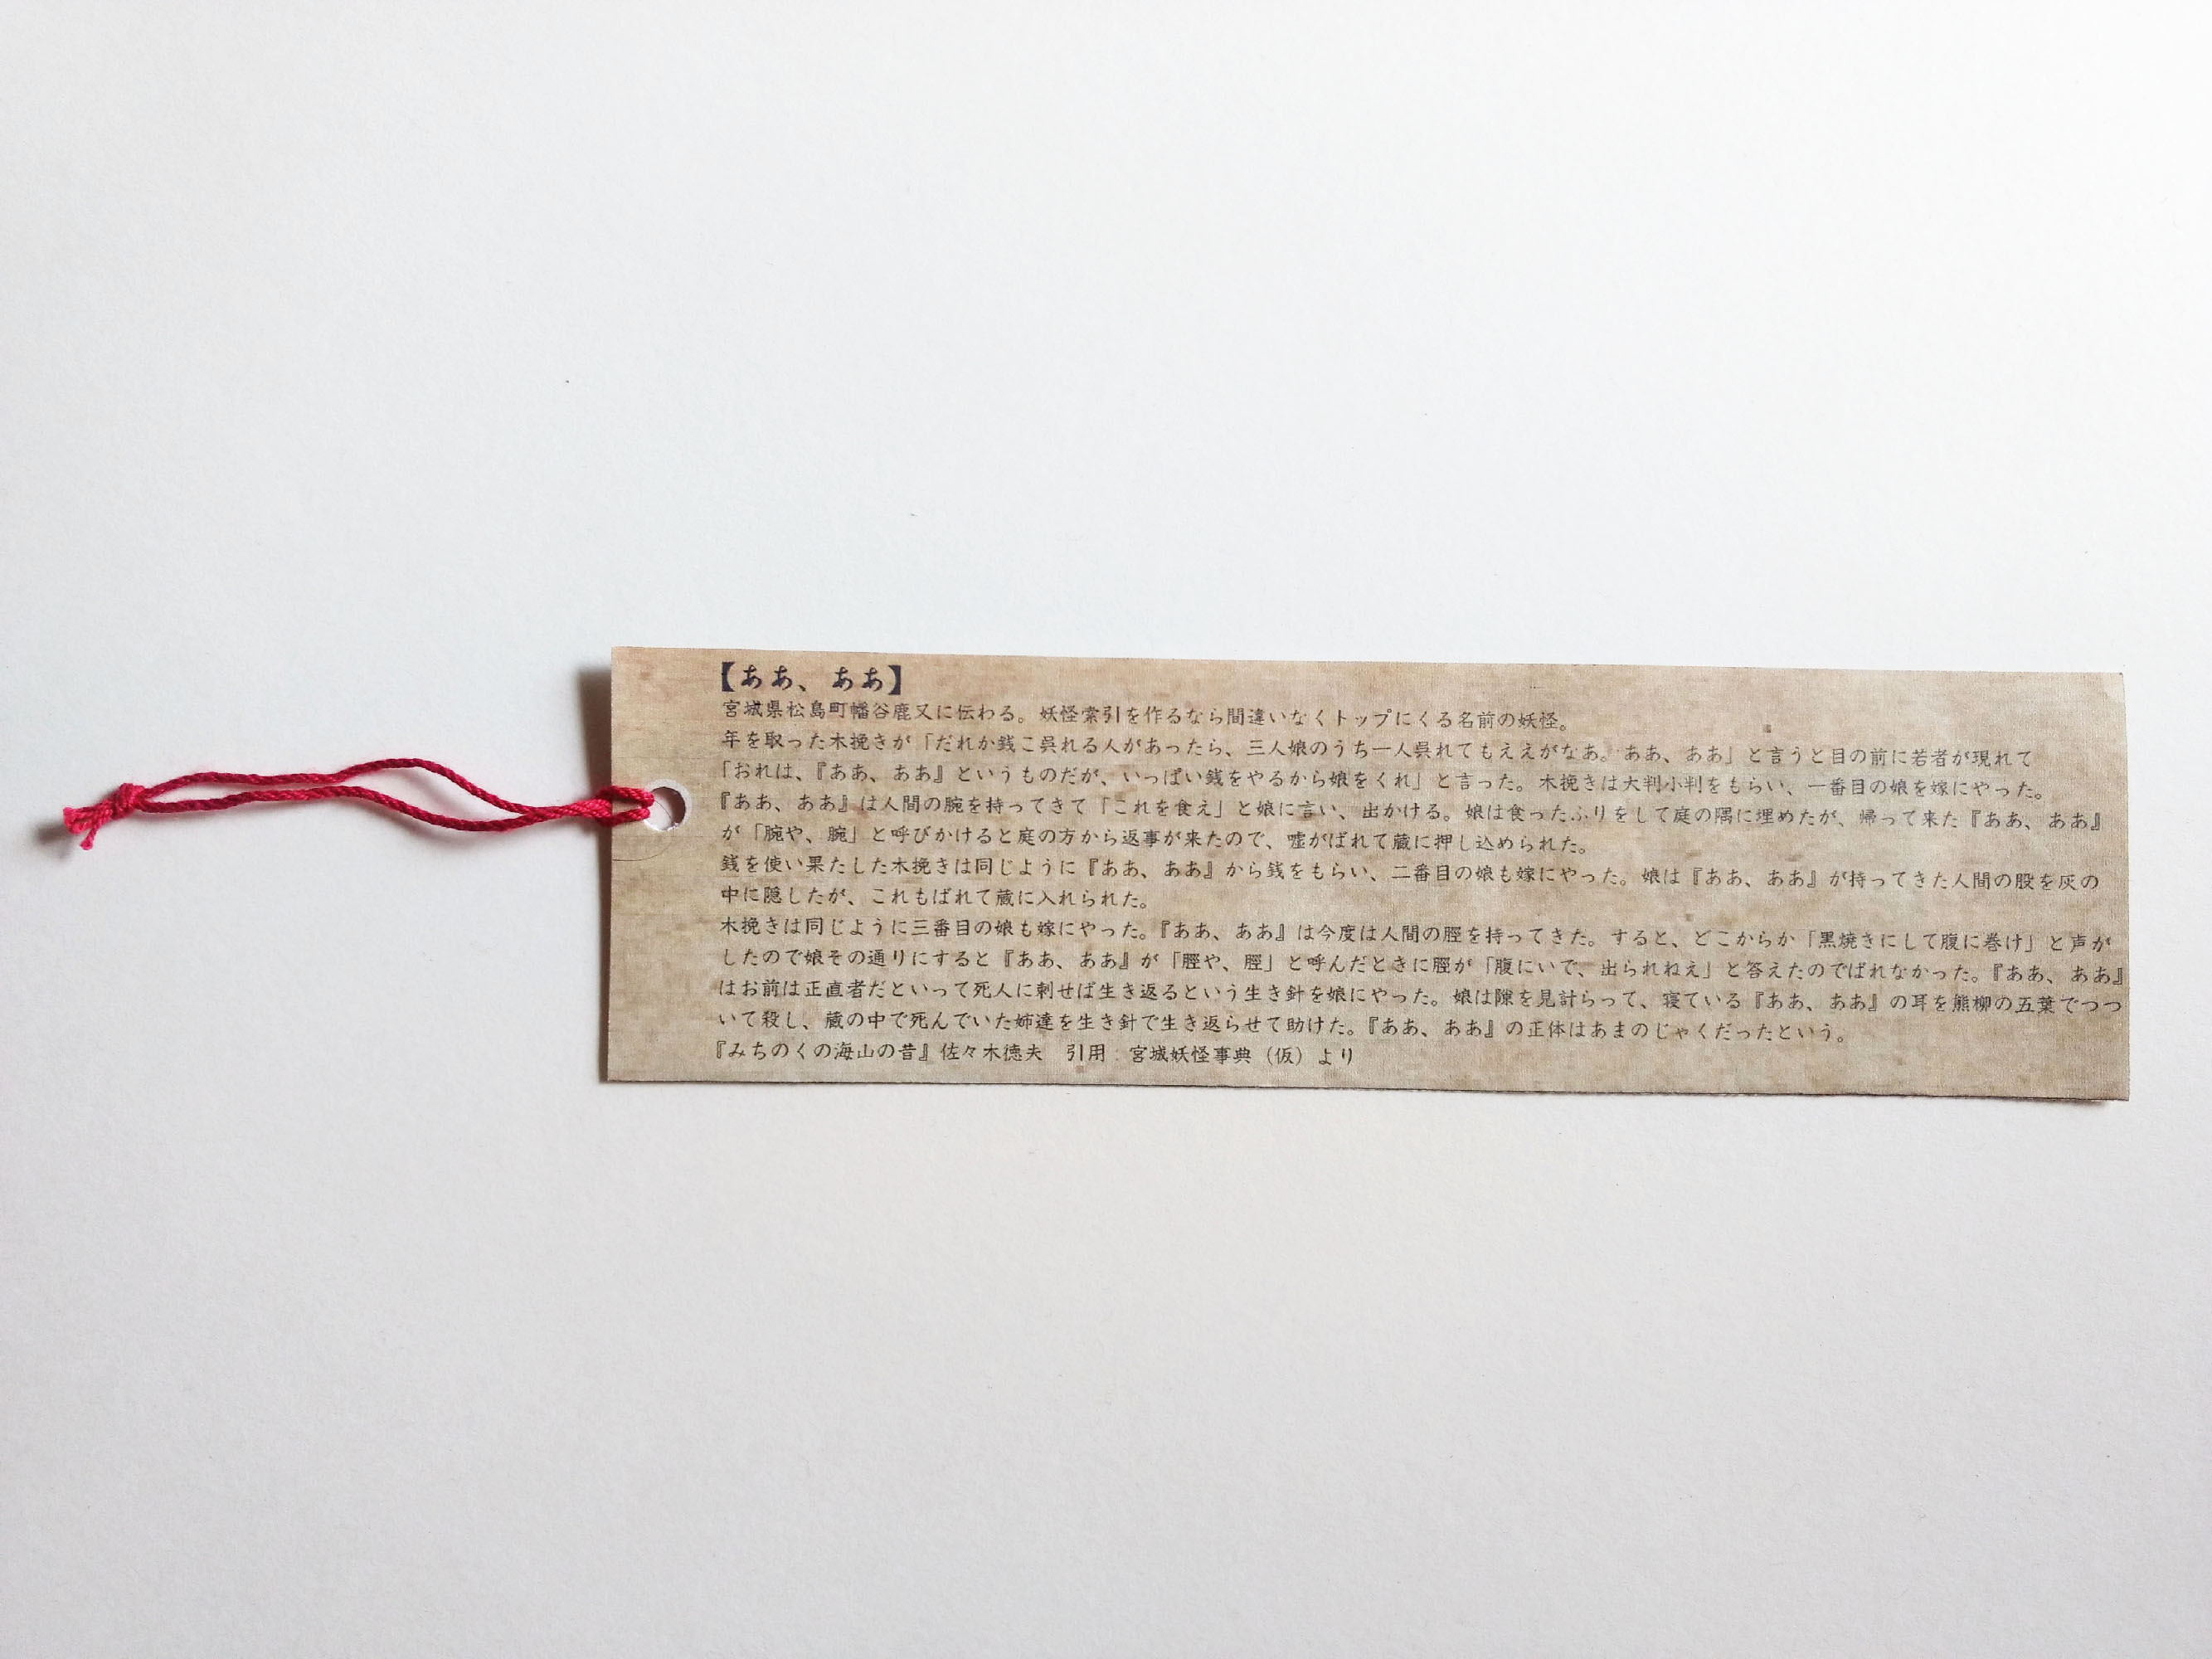 【ああ、ああ】
宮城県松島町幡谷鹿又に伝わる。妖怪索引を作るなら間違いなくトップにくる名前の妖怪。
年を取った木挽きが「だれか銭こ呉れる人があったら、三人娘のうち一人呉れてもええがなあ。ああ、ああ」と言うと目の前に若者が現れて
「おれは、『ああ、ああ』というものだが、いっぱい銭をやるから娘をくれ」と言った。木挽きは大判小判をもらい、一番目の娘を嫁にやった。
『ああ、ああ』は人間の腕を持ってきて「これを食え」と娘に言い、出かける。娘は食ったふりをして庭の隅に埋めたが、帰って来た『ああ、ああ』
が「腕や、腕」と呼びかけると庭の方から返事が来たので、嘘がばれて蔵に押し込められた。
銭を使い果たした木挽きは同じように『ああ、ああ』から銭をもらい、二番目の娘も嫁にやった。娘は『ああ、ああ』が持ってきた人間の股を灰の
中に隠したが、これもばれて蔵に入れられた。
木挽きは同じように三番目の娘も嫁にやった。『ああ、ああ』は今度は人間の脛を持ってきた。すると、どこからか「黒焼きにして腹に巻け」と声が
したので娘その通りにすると『ああ、ああ』が「脛や、脛」と呼んだときに脛が「腹にいで、出られねえ」と答えたのでばれなかった。『ああ、ああ』
はお前は正直者だといって死人に刺せば生き返るという生き針を娘にやった。娘は隙を見計らって、寝ている『ああ、ああ』の耳を熊柳の五葉でつつ
いて殺し、蔵の中で死んでいた姉達を生き針で生き返らせて助けた。『ああ、ああ』の正体はあまのじゃくだったという。
『みちのくの海山の昔』佐々木徳夫　引用：宮城妖怪事典（仮）より